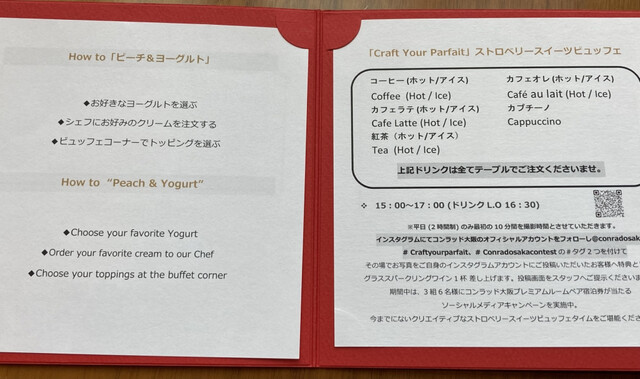 How to「ピーチ&ヨーグルト」
◆お好きなヨーグルトを選ぶ
◆シェフにお好みのクリームを注文する
◆ビュッフェコーナーでトッピングを選ぶ
How to “Peach & Yogurt”
◆Choose your favorite Yogurt
◆Order your favorite cream to our Chef
◆Choose your toppings at the buffet corner
「Craft Your Parfait」ストロベリースイーツビュッフェ
コーヒー(ホット/アイス)
Coffee (Hot / Ice)
カフェラテ(ホット/アイス)
Cafe Latte (Hot / Ice)
紅茶(ホット/アイス)
Tea (Hot / Ice)
カフェオレ(ホット/アイス)
Café au lait (Hot / Ice)
カプチーノ
Cappuccino
上記ドリンクは全てテーブルでご注文くださいませ。
❖ 15:00~17:00 (ドリンク L.O 16:30)
※平日(2時間制)のみ最初の10分間を撮影時間とさせていただきます。
インスタグラムにてコンラッド大阪のオフィシャルアカウントをフォローし@conradosaka
# Craftyourparfait、# Conradosakacontest の#タグ2つを付けて
その場でお写真をご自身のインスタグラムアカウントにご投稿いただいたお客様へ特典と
グラススパークリングワイン1杯 差し上げます。投稿画面をスタッフへご提示ください
期間中は、3組6名様にコンラッド大阪プレミアムルームペア宿泊券が当たる
ソーシャルメディアキャンペーンを実施中。
今までにないクリエイティブなストロベリースイーツビュッフェタイムをご堪能くださ